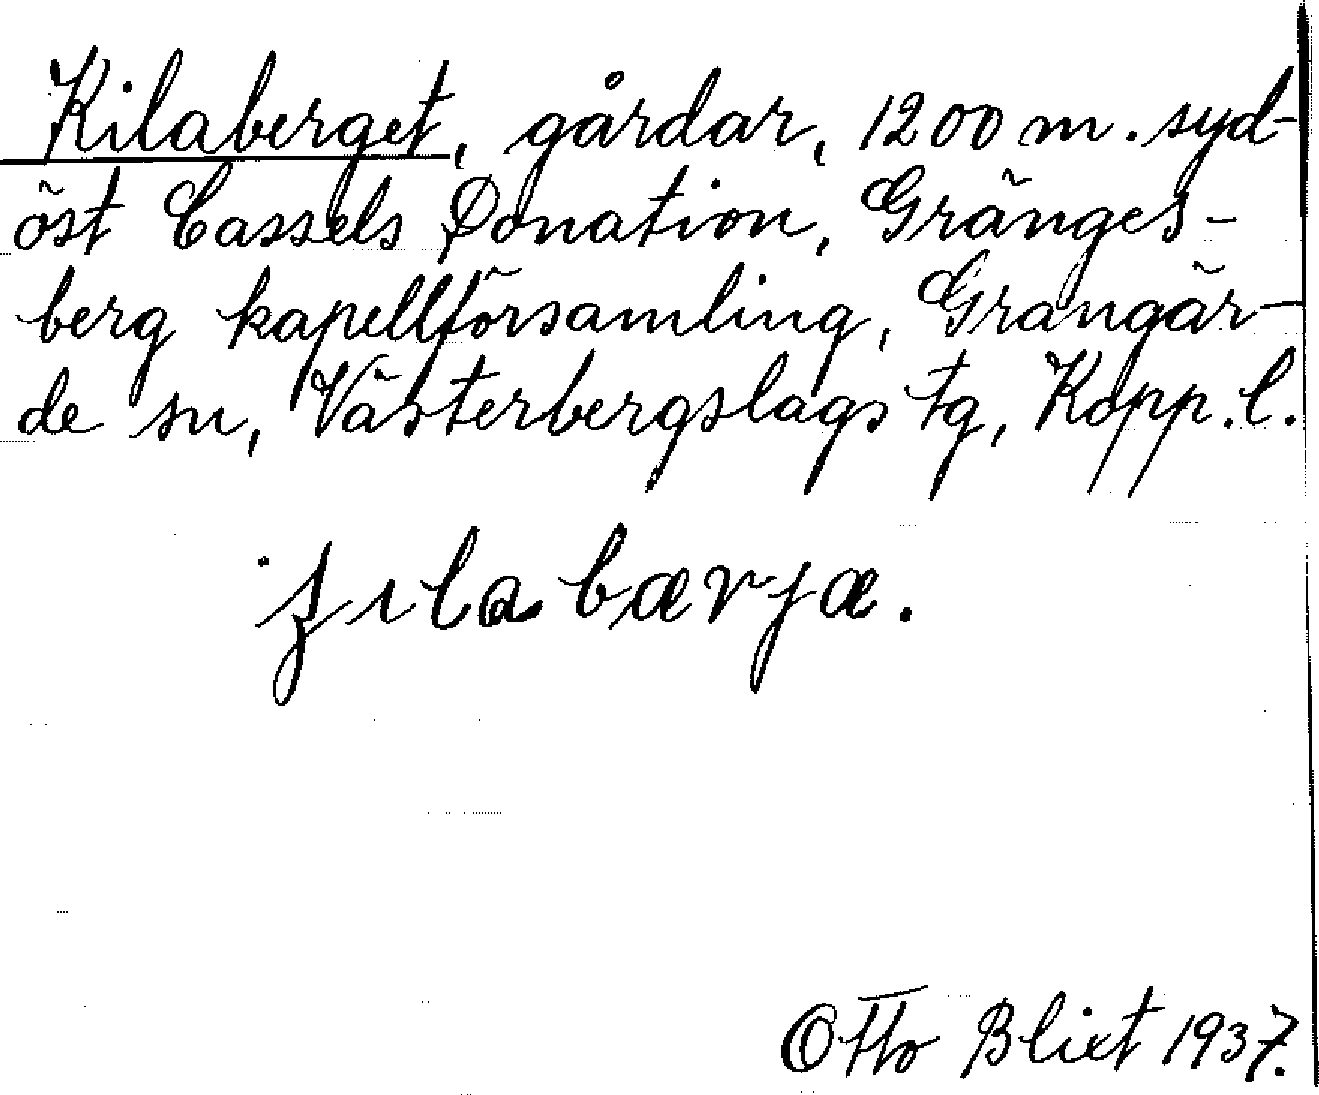 Kilaberget, gårdar, 1200 m. syd-
öst Cassels Donation, Gränges-
berg kapellförsamling, Grangär-
de sn, Västerbergslags tg, Kopp. l.
Otto Blixt 1937.